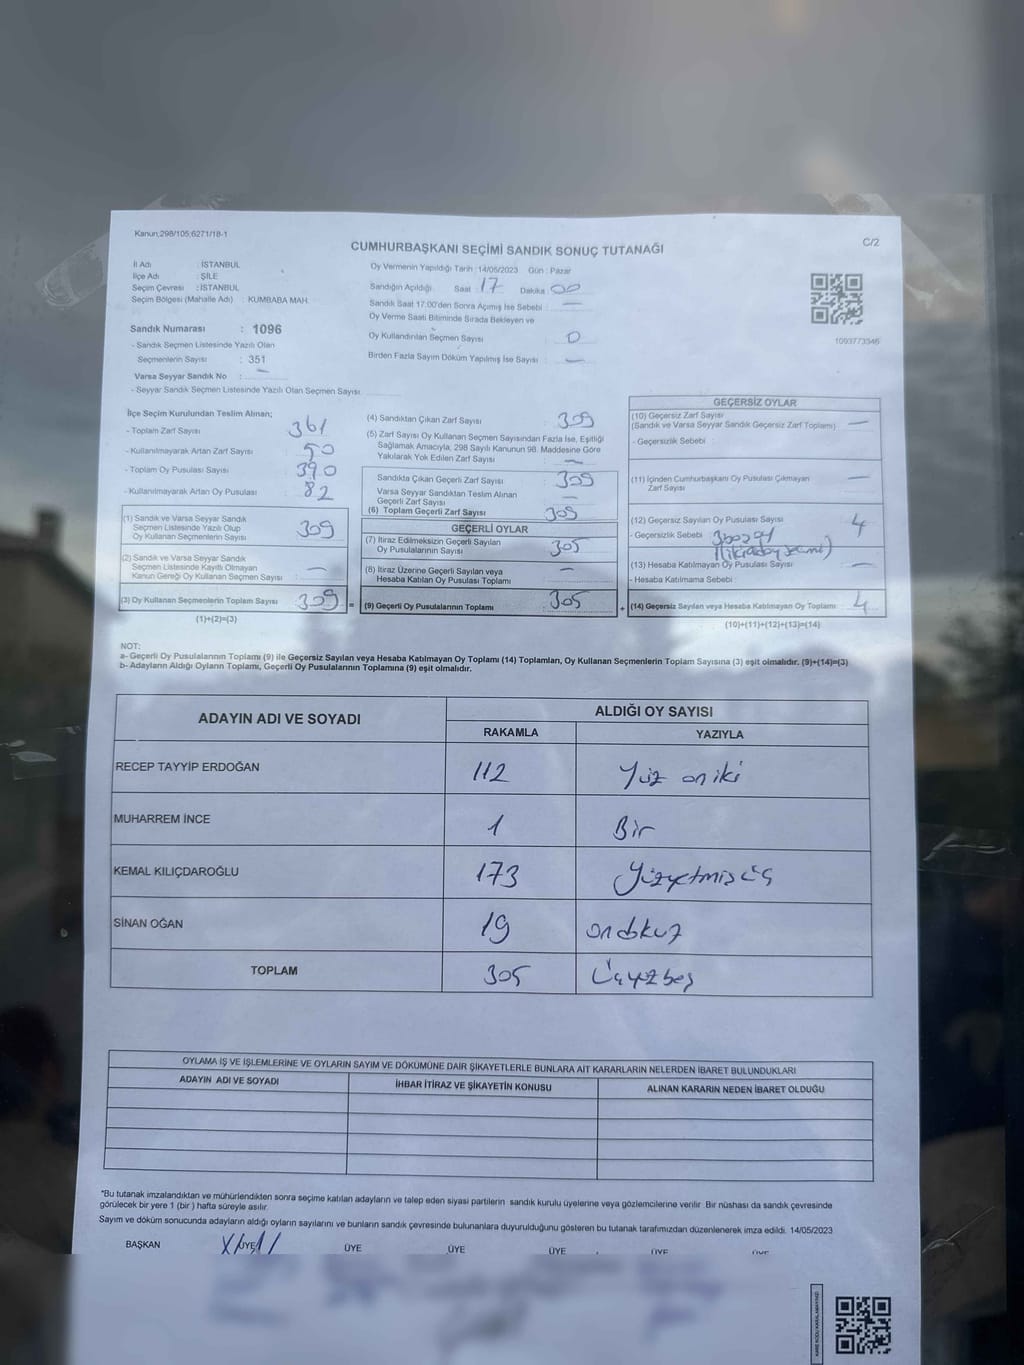 Kanun;298/105;6271/18-1
C/2
CUMHURBAŞKANI SEÇİMİ SANDIK SONUÇ TUTANAĞI
İl Adı : İSTANBUL
İlçe Adı : ŞİLE
Seçim Çevresi : İSTANBUL
Seçim Bölgesi (Mahalle Adı) : KUMBABA MAH.
Sandık Numarası : 1096
- Sandık Seçmen Listesinde Yazılı Olan
Seçmenlerin Sayısı : 351
Varsa Seyyar Sandık No :
- Seyyar Sandık Seçmen Listesinde Yazılı Olan Seçmen Sayısı
Oy Vermenin Yapıldığı Tarih : 14/05/2023 Gün : Pazar
Sandığın Açıldığı Saat 17 Dakika 00
Sandık Saat 17.00'den Sonra Açımış İse Sebebi : —
Oy Verme Saati Bitiminde Sırada Bekleyen ve
Oy Kullandırılan Seçmen Sayısı : 0
Birden Fazla Sayım Döküm Yapılmış İse Sayısı : —
1093773346
İlçe Seçim Kurulundan Teslim Alınan;
- Toplam Zarf Sayısı : 361
- Kullanılmayarak Artan Zarf Sayısı : 50
- Toplam Oy Pusulası Sayısı : 390
- Kullanılmayarak Artan Oy Pusulası : 82
(1) Sandık ve Varsa Seyyar Sandık
Seçmen Listesinde Yazılı Olup
Oy Kullanan Seçmenlerin Sayısı : 309
(2) Sandık ve Varsa Seyyar Sandık
Seçmen Listesinde Kayıtlı Olmayan
Kanun Gereği Oy Kullanan Seçmen Sayısı : —
(3) Oy Kullanan Seçmenlerin Toplam Sayısı : 309 =
(1)+(2)=(3)
(4) Sandıktan Çıkan Zarf Sayısı : 309
(5) Zarf Sayısı Oy Kullanan Seçmen Sayısından Fazla İse, Eşitliği
Sağlamak Amacıyla, 298 Sayılı Kanunun 98. Maddesine Göre
Yakılarak Yok Edilen Zarf Sayısı : —
Sandıkta Çıkan Geçerli Zarf Sayısı : 309
Varsa Seyyar Sandıktan Teslim Alınan
Geçerli Zarf Sayısı : —
(6) Toplam Geçerli Zarf Sayısı : 309
GEÇERLİ OYLAR
(7) İtiraz Edilmeksizin Geçerli Sayılan
Oy Pusulalarının Sayısı : 305
(8) İtiraz Üzerine Geçerli Sayılan veya
Hesaba Katılan Oy Pusulası Toplamı : —
(9) Geçerli Oy Pusulalarının Toplamı : 305 +
GEÇERSİZ OYLAR
(10) Geçersiz Zarf Sayısı
(Sandık ve Varsa Seyyar Sandık Geçersiz Zarf Toplamı) : —
- Geçersizlik Sebebi :
(11) İçinden Cumhurbaşkanı Oy Pusulası Çıkmayan
Zarf Sayısı : —
(12) Geçersiz Sayılan Oy Pusulası Sayısı : 4
- Geçersizlik Sebebi :
(13) Hesaba Katılmayan Oy Pusulası Sayısı : —
- Hesaba Katılmama Sebebi :
(14) Geçersiz Sayılan veya Hesaba Katılmayan Oy Toplamı : 4
(10)+(11)+(12)+(13)=(14)
NOT:
a- Geçerli Oy Pusulalarının Toplamı (9) ile Geçersiz Sayılan veya Hesaba Katılmayan Oy Toplamı (14) Toplamları, Oy Kullanan Seçmenlerin Toplam Sayısına (3) eşit olmalıdır. (9)+(14)=(3)
b- Adayların Aldığı Oyların Toplamı, Geçerli Oy Pusulalarının Toplamına (9) eşit olmalıdır.
ADAYIN ADI VE SOYADI
ALDIĞI OY SAYISI
RAKAMLA YAZIYLA
RECEP TAYYİP ERDOĞAN 112 Yüz on iki
MUHARREM İNCE 1 Bir
KEMAL KILIÇDAROĞLU 173 Yüzyetmiş üç
SİNAN OĞAN 19 ondokuz
TOPLAM 305 Üçyüzbeş
OYLAMA İŞ VE İŞLEMLERİNE VE OYLARIN SAYIM VE DÖKÜMÜNE DAİR ŞİKAYETLERLE BUNLARA AİT KARARLARIN NELERDEN İBARET BULUNDUKLARI
ADAYIN ADI VE SOYADI İHBAR İTİRAZ VE ŞİKAYETİN KONUSU ALINAN KARARIN NEDEN İBARET OLDUĞU
*Bu tutanak imzalandıktan ve mühürlendikten sonra seçime katılan adayların ve talep eden siyasi partilerin sandık kurulu üyelerine veya gözlemcilerine verilir. Bir nüshası da sandık çevresinde
görülecek bir yere 1 (bir ) hafta süreyle asılır.
Sayım ve döküm sonucunda adayların aldığı oyların sayılarını ve bunların sandık çevresinde bulunanlara duyurulduğunu gösteren bu tutanak tarafımızdan düzenlenerek imza edildi. 14/05/2023
BAŞKAN ÜYE ÜYE ÜYE ÜYE ÜYE ÜYE